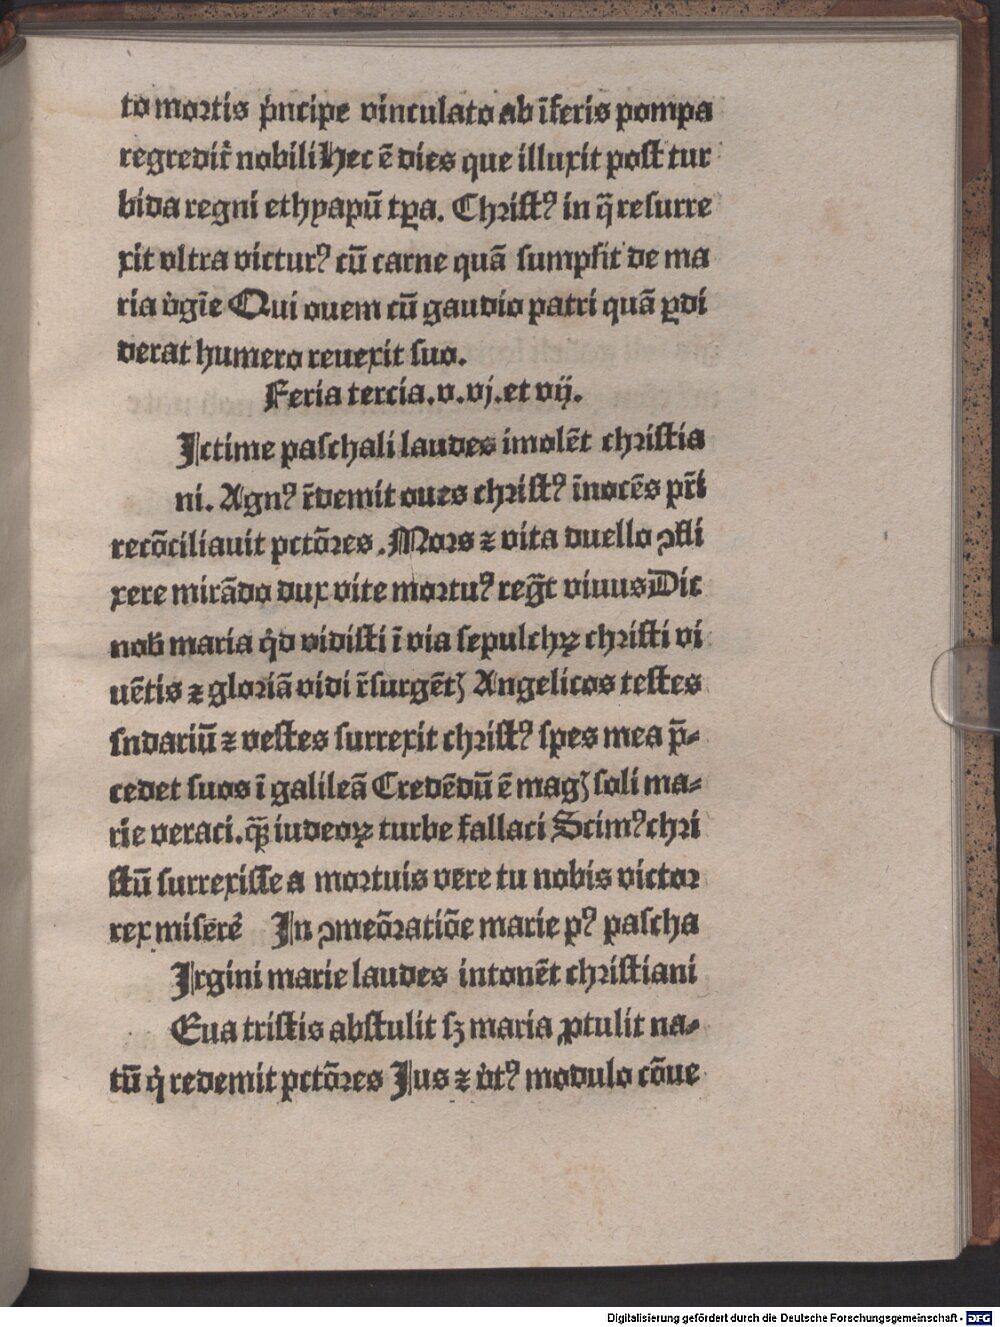 to mortis pͥncipe vinculato ab īferis pompa
regredit᷑ nobili Hec ē dies que illuxit post tur
bida regni ethyapū tꝑa. Christꝰ in q̄ resurre
xit vltra victurꝰ cū carne quā sumpsit de ma
ria v̓gīe Qui ouem cū gaudio patri quā ꝑdi
derat humero reuexit suo.
Feria tercia. v. vj. et vij.
Ictime paschali laudes imolēt christia
ni. Agnꝰ r̄demit oues christꝰ īnocēs pr̄i
recōciliauit pctōres. Mors ⁊ vita duello ꝯfli
xere mirādo dux vite mortuꝰ regͣt viuus Dic
nob̄ maria qͥd vidisti ī via sepulchꝝ christi vi
uētis ⁊ gloriā vidi r̄surgētꝫ Angelicos testes
sndariū ⁊ vestes surrexit christꝰ spes mea p̄-
cedet suos ī galileā Credēdū ē magꝫ soli ma-
rie veraci. qͣꝫ iudeoꝝ turbe fallaci Scimꝰ chri
stū surrexisse a mortuis vere tu nobis victor
rex miserē In ꝯmeōratiōe marie pꝰ pascha
Irgini marie laudes intonēt christiani
Eua tristis abstulit sꝫ maria ꝓtulit na-
tū qͥ redemit pctōres Ius ⁊ v̓tꝰ modulo cōue
Digitalisierung gefördert durch die Deutsche Forschungsgemeinschaft - DFG